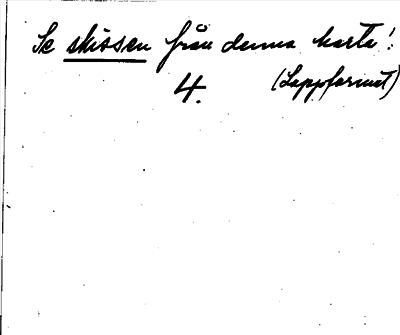 Se skissen från denna karta!
4. (Lappfarmet)